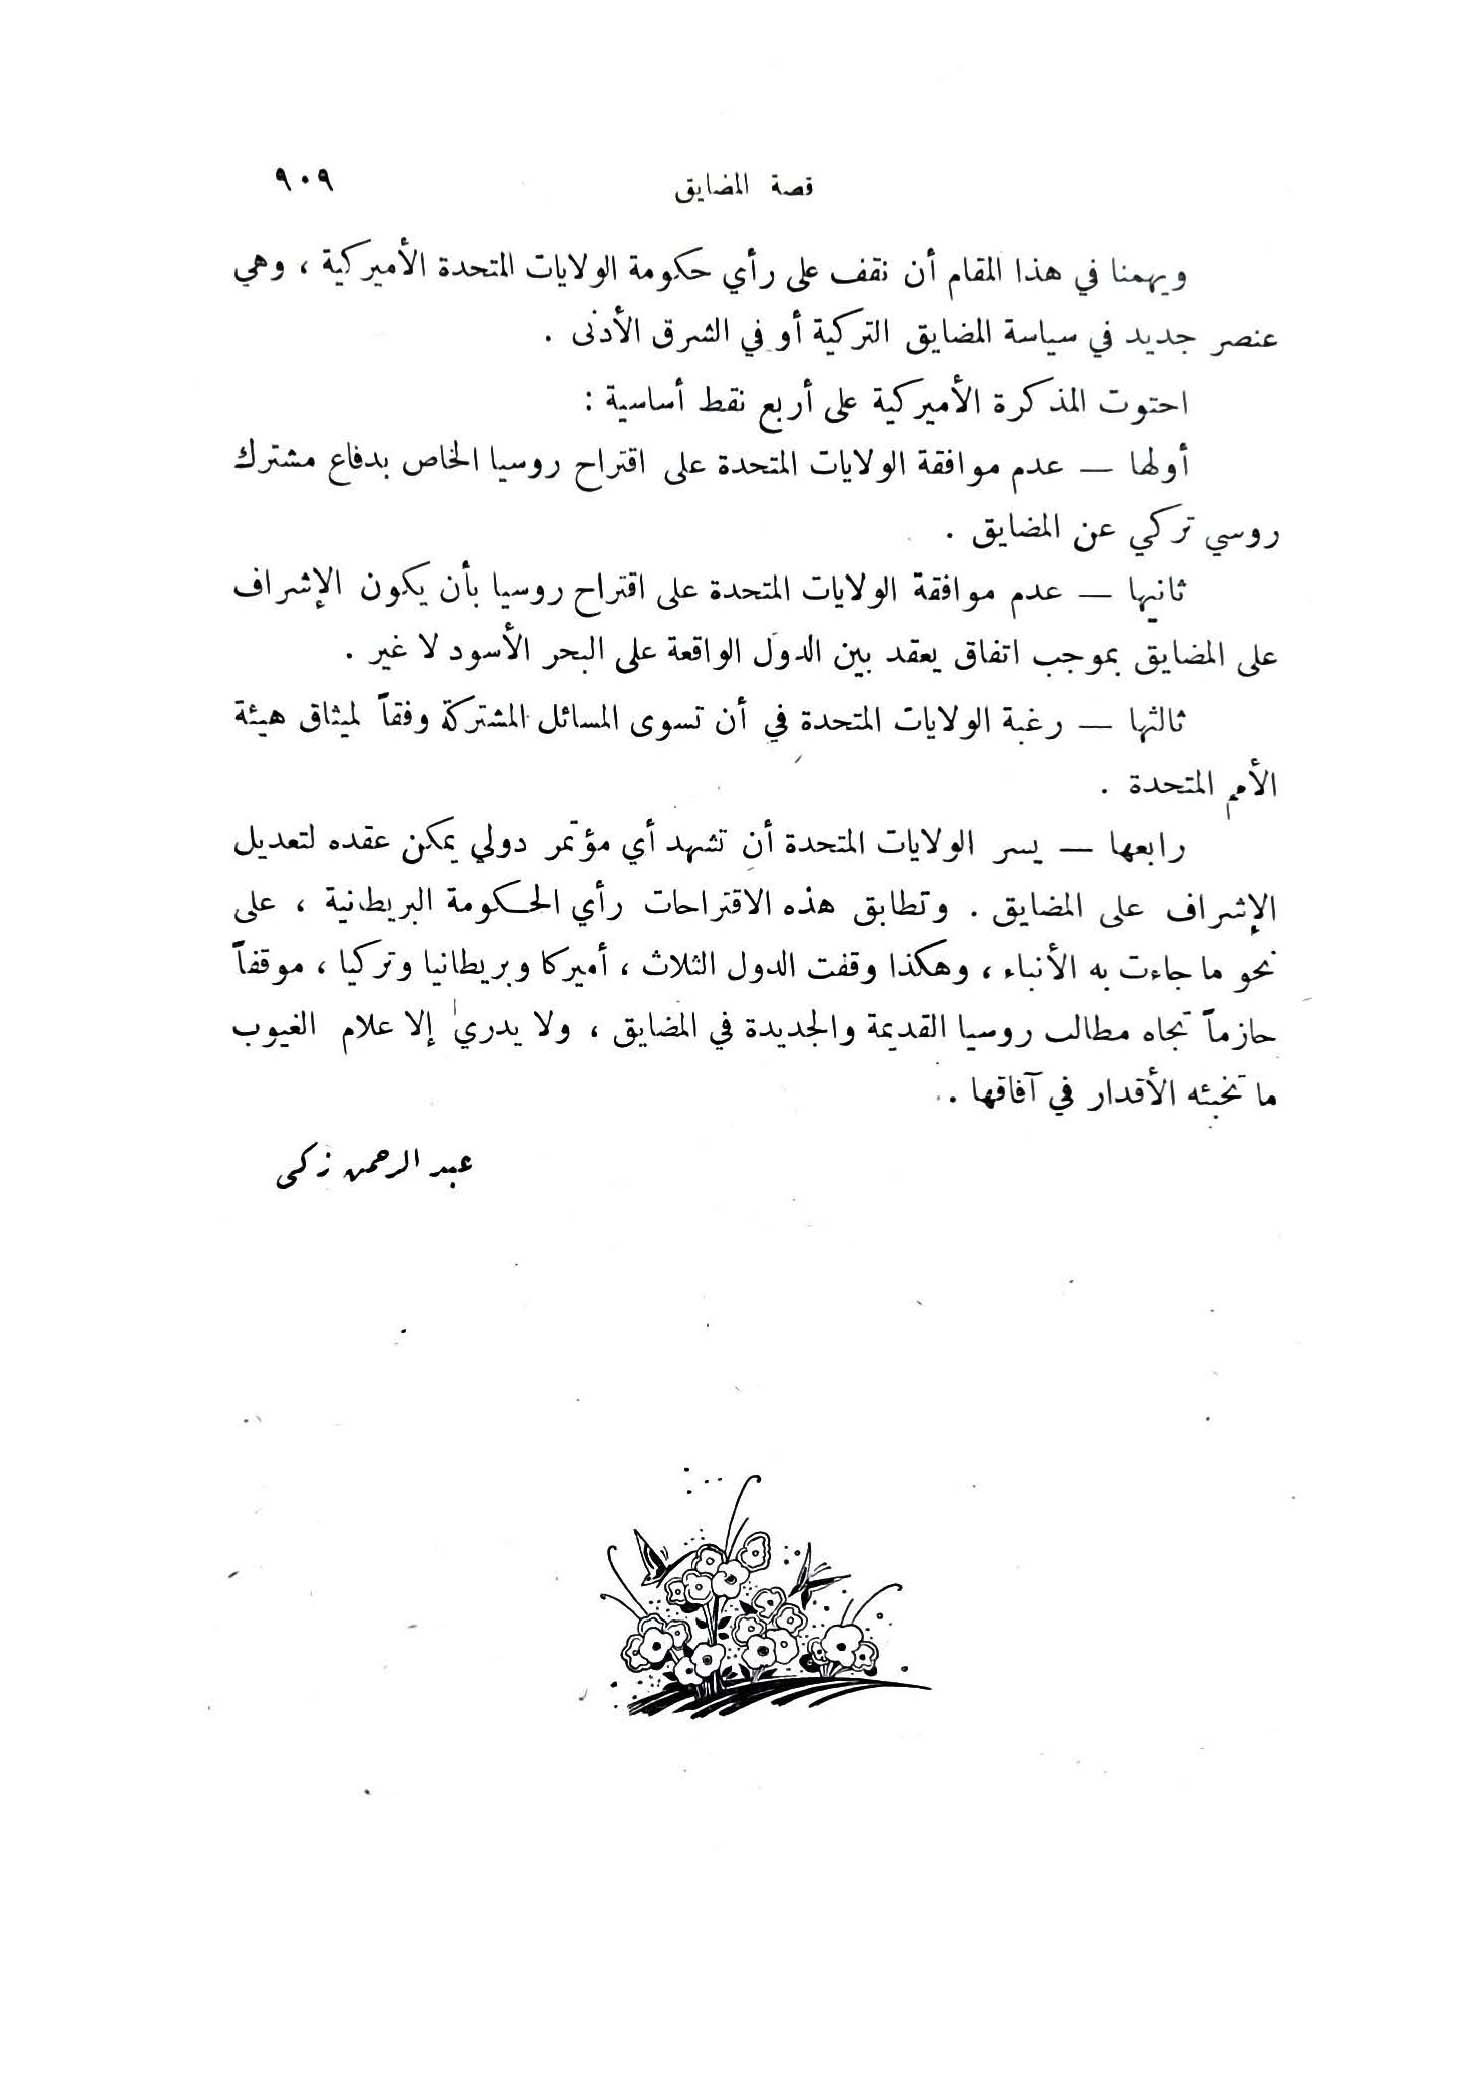 قصة المضايق ٩٠٩
ويهمنا في هذا المقام أن نقف على رأي حكومة الولايات المتحدة الأميركية ، وهي
عنصر جديد في سياسة المضايق التركية أو في الشرق الأدنى .
احتوت المذكرة الأميركية على أربع نقط أساسية :
أولها — عدم موافقة الولايات المتحدة على اقتراح روسيا الخاص بدفاع مشترك
روسي تركي عن المضايق .
ثانيها — عدم موافقة الولايات المتحدة على اقتراح روسيا بأن يكون الإشراف
على المضايق بموجب اتفاق يعقد بين الدول الواقعة على البحر الأسود لا غير .
ثالثها — رغبة الولايات المتحدة في أن تسوى المسائل المشتركة وفقاً لميثاق هيئة
الأمم المتحدة .
رابعها — يسر الولايات المتحدة أن تشهد أي مؤتمر دولي يمكن عقده لتعديل
الإشراف على المضايق . وتطابق هذه الاقتراحات رأي الحكومة البريطانية ، على
نحو ما جاءت به الأنباء ، وهكذا وقفت الدول الثلاث ، أميركا وبريطانيا وتركيا ، موقفاً
حازماً تجاه مطالب روسيا القديمة والجديدة في المضايق ، ولا يدري إلا علام الغيوب
ما تخبئه الأقدار في آفاقها .
عبد الرحمن زكى